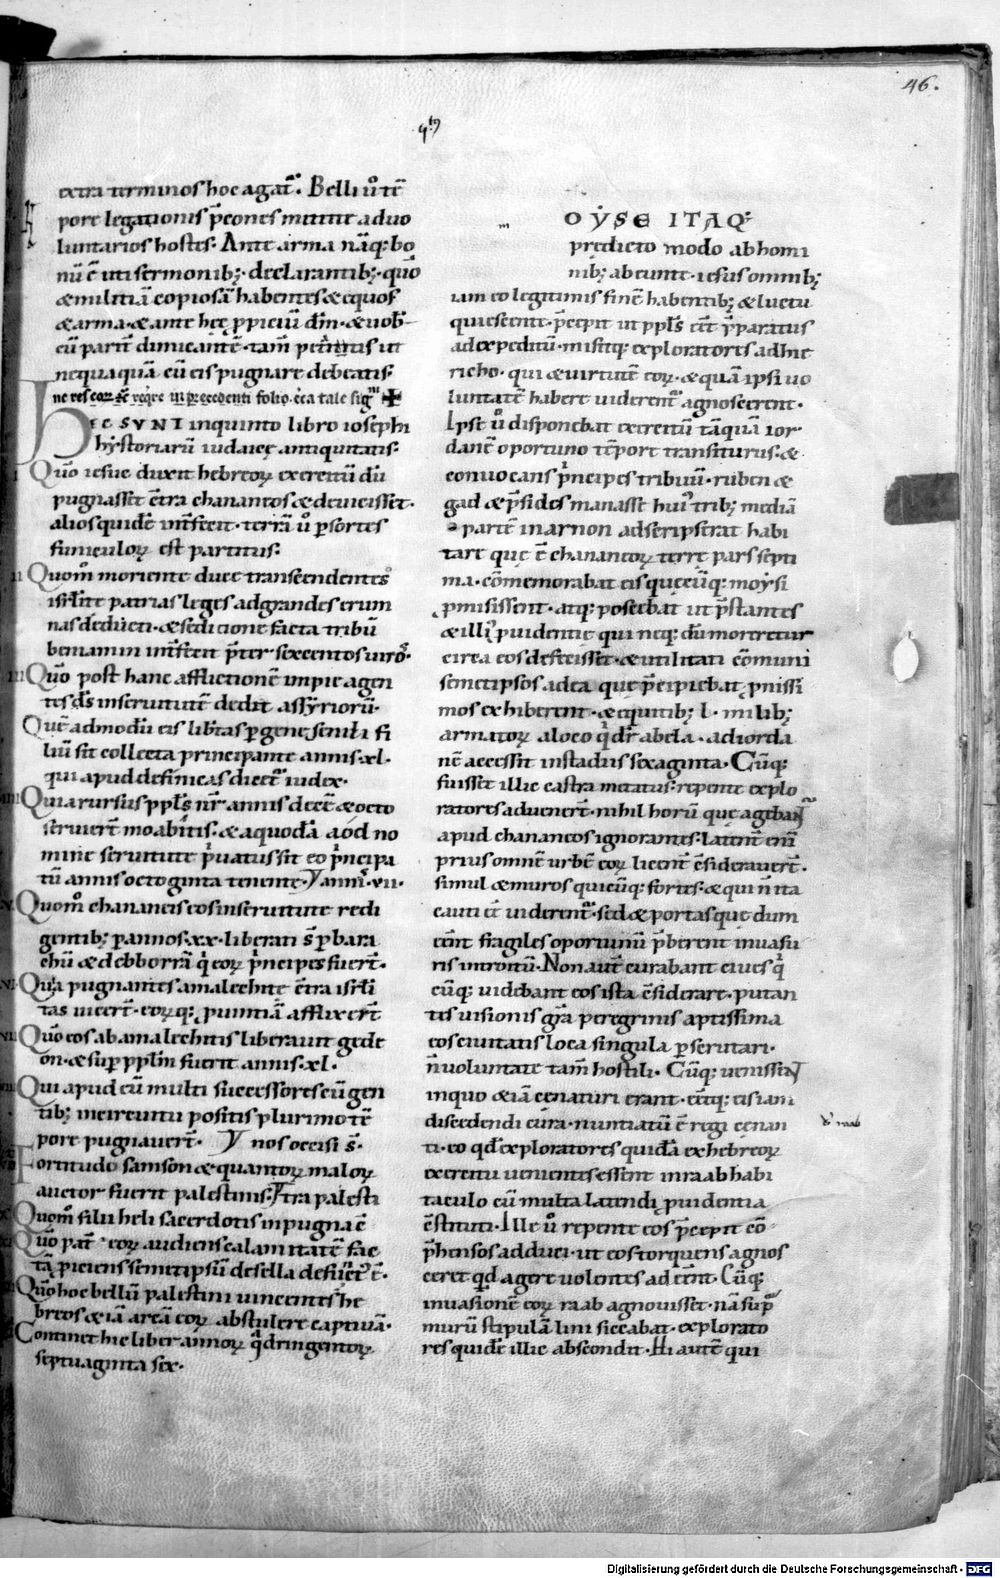 46.
extra terminos hoc agat̄. Belli ū tē
pore legationis p̄cones mittite ad uo
luntarios hostes. Ante arma nāq; bo
nū ē uti sermonib; declarantib; quō
& militiā copiosā habentes & equos
& arma. & ante hęc ppiciū dm̄. & uob̄
cū partē dimicantē. tam̄ petentes ut
nequaquā cū eis pugnare debeatis.
HEC SUNT in quinto libro iosephi
hystoriarū iudaicę antiquitatis.
I Quō iesue dux hebreoꝝ exercitū dū
pugnasset c̄tra chananeos & deuicisset.
alios quidē int̄fecit. terrā ū p sortes
funiculoꝝ est partitus.
II Quom̄ moriente duce transcendentes
isrl̄itę patrias leges ad grandes erum
nas deducti. & seditione facta tribū
beniamin int̄fecit p̄ter sexcentos uiros.
III Quō post hanc afflictionē impie agen
tes d̄s in seruitutē dedit assyriorū.
Quē admodū eis lib̄tas p genez senili fi
liū sit collecta principante annis .xl.
qui apud definicas dicet̄ iudex.
IIII Quia rursus ppl̄s nr̄ annis decē & octo
seruiert̄ moabitis. & a quodā aod no
mine seruitute p̄uatus sit eo p̄ncipa
tū annis octoginta tenente.
V Quom̄ chananeis eos in seruitute redi
gentib; p annos .xx. liberati s̄ p bara
chū & debborrā q̄ eoꝝ p̄ncipes fuert̄.
VI Quia pugnantes amalechitę c̄tra isrl̄i
tas uicert̄. eorūq; puintiā afflixert̄
VII Quō eos ab amalechitis liberauit gede
on. & sup̄ ppl̄m fuerit annis .xl.
VIII Qui apud eū multi successores cū gen
tib; in circuitu positis plurimo tē
pore pugnauert̄.
nos occisi s̄.
Fortitudo samson & quantoꝝ maloꝝ
auctor fuerit palestinis.
Quom̄ filii heli sacerdotis in pugna c̄
tra palesti
Quō pat̄ eoꝝ audiens calamitatē fac
tā piciens semetipsū de sella defunct̄ ē.
Quō hoc bellū palestini uincentes he
breos & iā arcā eoꝝ abstulere captiuā.
Continet hic liber annoꝝ q̄dringentoꝝ
septuaginta sex.
OYSE ITAQ;
predicto modo ab homi
nib; abeunte. iesus omnib;
iam eo legitimis finē habentib; & luctu
quiescente. p̄cepit ut ppl̄s eēt p̄paratus
ad expeditū. misitq; exploratores ad hie
richo. qui & uirtutē eoꝝ & quā ipsi uo
luntatē haberē uiderent̄ agnoscerent.
Ipse ū disponebat exercitū tāquā ior
danē oportuno tēpore transiturus. &
conuocans p̄ncipes tribuū. ruben &
gad & p̄sides manasse. hui⁹ trib; mediā
partē in arnon adscripserat habi
tare que ē chananeoꝝ terrę pars septi
ma. cōmemorabat eis quecūq; moysi
pmisissent. atq; poscebat ut p̄stantes
& illi⁹ puidentię qui neq; dū moreretur
circa eos defecisset. & utilitati cōmuni
semetipsos ad ea que p̄cipiebat pnissi
mos exhiberent. & equitib; l. milib;
armatoꝝ a loco q̄ dr̄ abela. ad iorda
nē accessit in stadiis sexaginta. Cūq;
fuisset illic castra metatus. repente explo
ratores aduenert̄. nihil horū que agebant̄
apud chananeos ignorantes. Latent̄ eni
prius omnē urbē eoꝝ licent̄ c̄siderauert̄.
simul & muros quicūq; fortes. & qui n̄ ita
cauti eē uiderent̄. sed & portas que dum
eēnt fragiles oportunū p̄berent inuaso
ris introitū. Non aut̄ curabant ciues q̄
cūq; uidebant eos ista c̄siderare. putan
tes uisionis gr̄a peregrinis aptissima
eos ciuitatis loca singula pscrutari.
n̄ uoluntate tam̄ hostili. Cūq; uenissent
in quo & iā cenaturi erant. eētq; eis iam
discedendi cura. nuntiatū ē regi cenan
ti. eo qd̄ exploratores quidā ex hebreoꝝ
exercitu uenientes essent in raab habi
taculo cū multa latendi puidentia
c̄stituti. Ille ū repente eos p̄cepit cō
p̄hensos adduci. ut eos torquens agnos
ceret qd̄ agere uolentes adeēnt. Cūq;
inuasionē eoꝝ raab agnouisset. nā sup̄
murū stipulā lini siccabat. explorato
res quidē illic abscondit. Hi autē qui
Digitalisierung gefördert durch die Deutsche Forschungsgemeinschaft - DFG